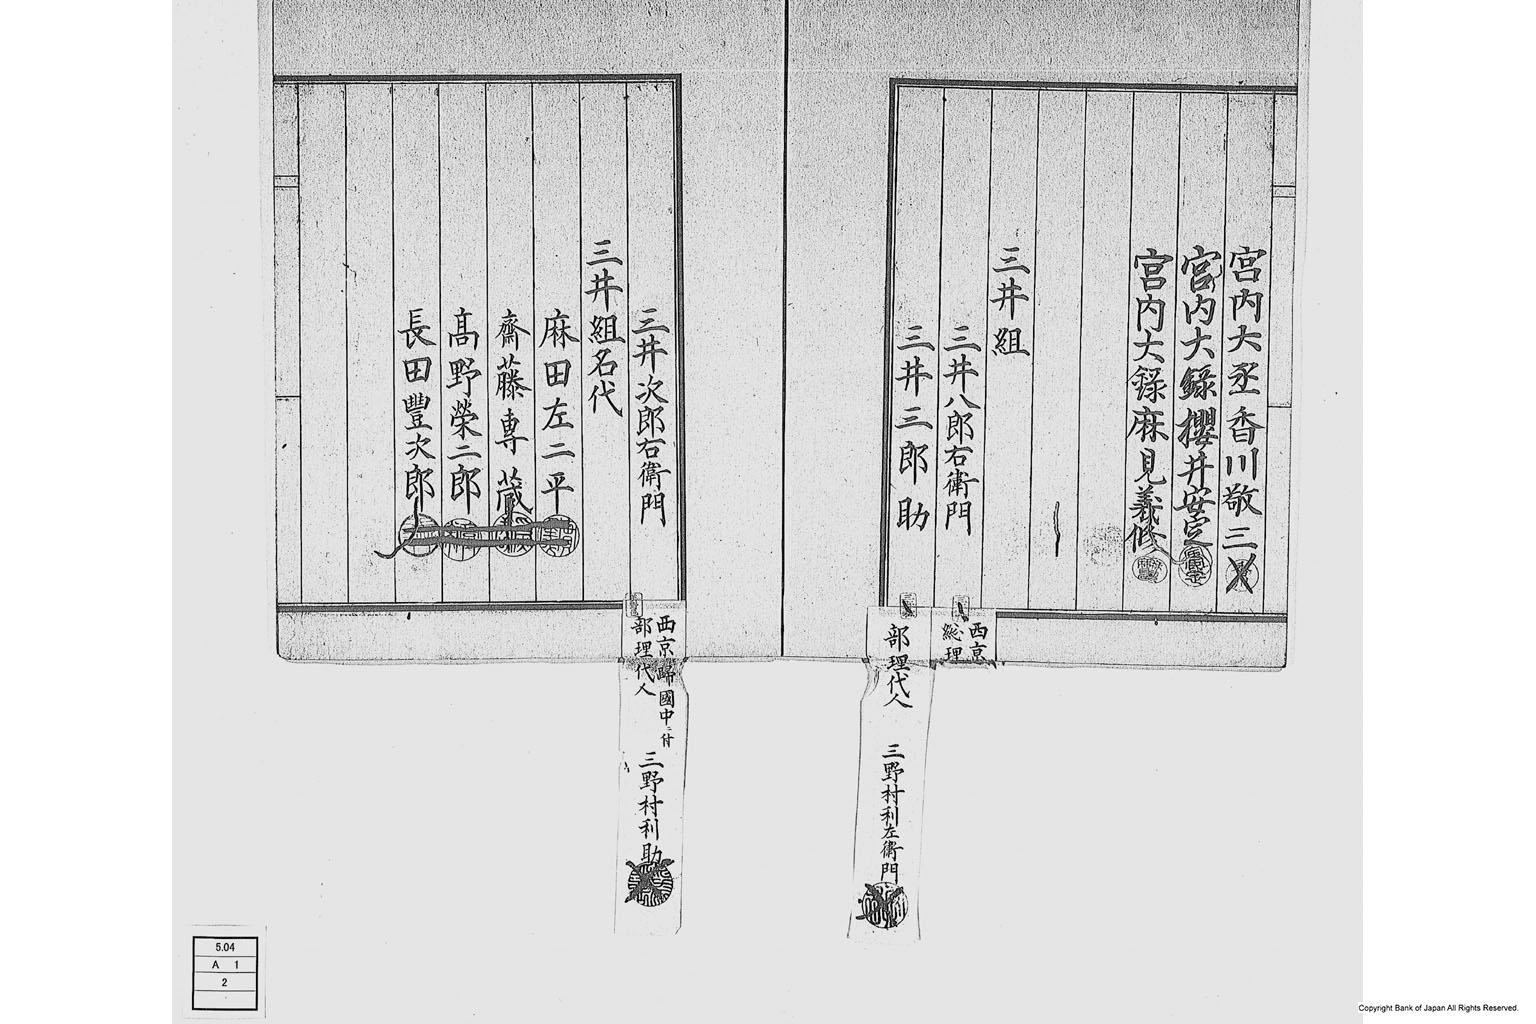 宮内大丞香川敬三
宮内大録櫻井安定
宮内大録麻見義修
三井組
三井八郎右衛門
西京
総理
三井三郎助
部理代人
三野村利左衛門
三井次郎右衛門
西京歸國中ニ付
部理代人
三野村利助
三井組名代
麻田左二平
齋藤専蔵
髙野榮二郎
長田豐次郎
5.04
A 1
2
Copyright Bank of Japan All Rights Reserved.